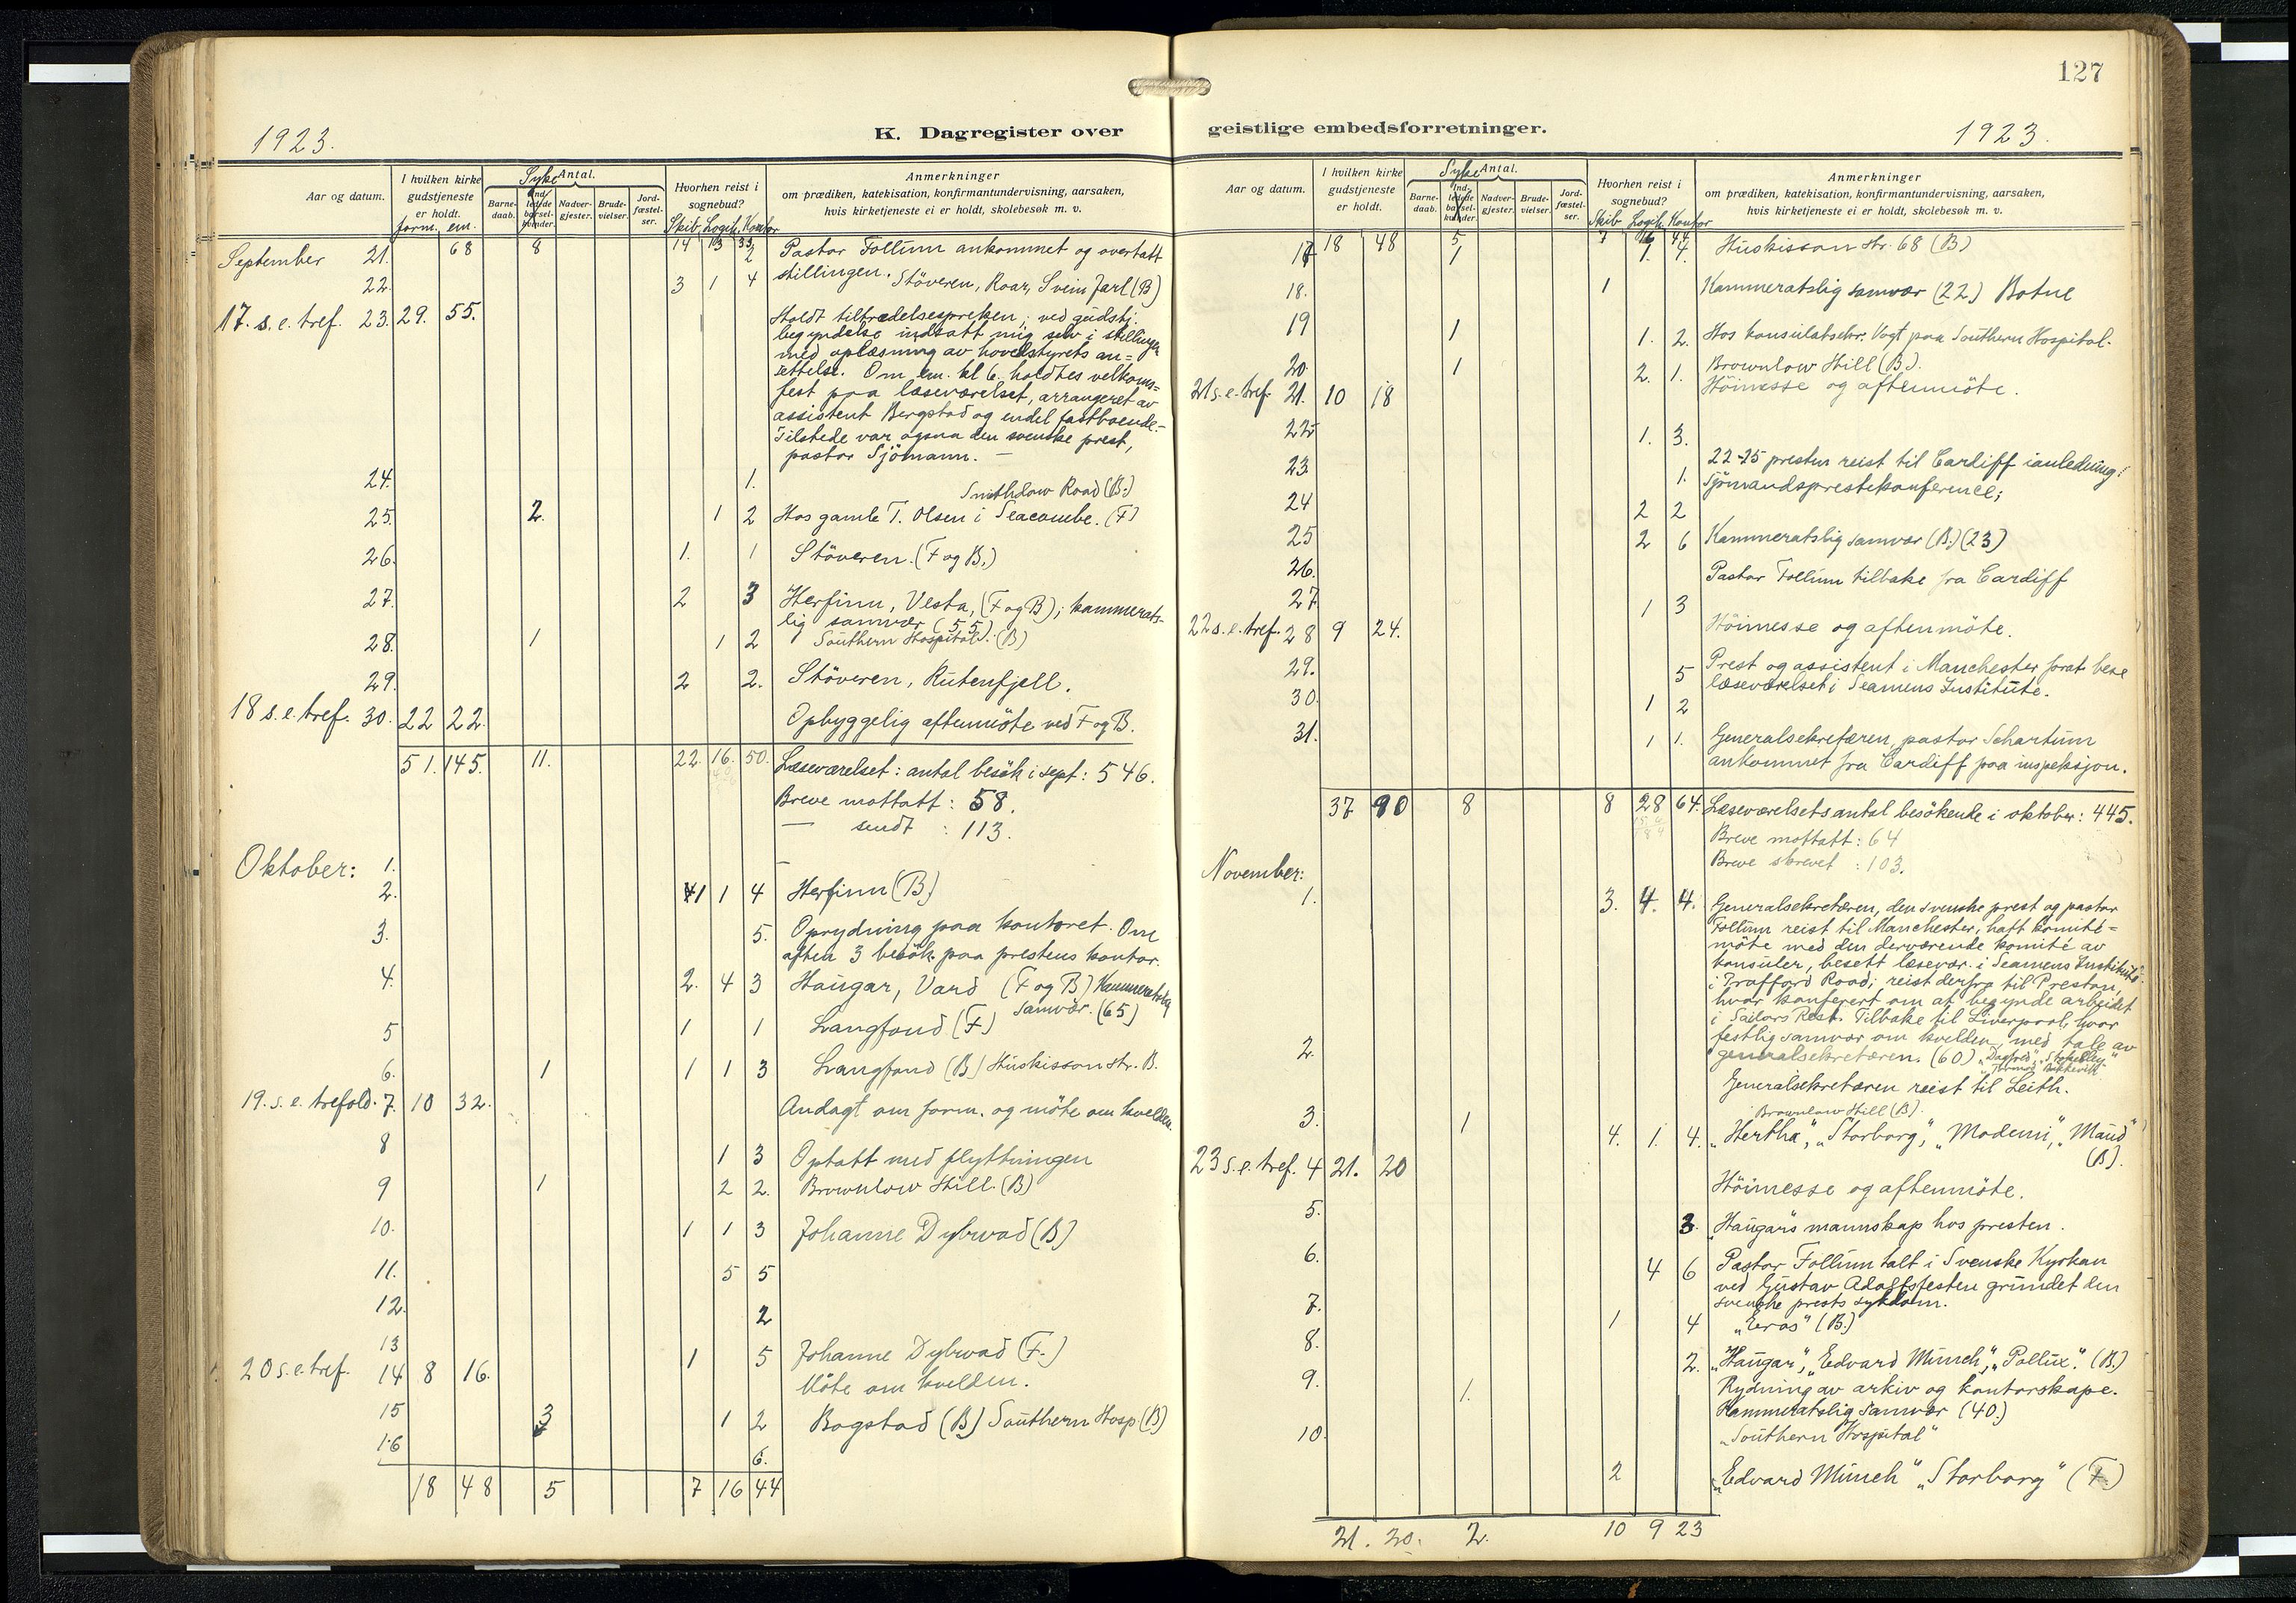 127
1923.
K. Dagregister over
geistlige embedsforretninger.
1923.
Aar og datum.
I hvilken kirke gudstjeneste er holdt.
form. em.
Syke
Antal.
Barne-daab.
Ind-ledede barsel-kvinder.
Nadver-gjester.
Brude-vielser.
Jord-fæstel-ser.
Hvorhen reist i sognebud?
Skib Logih. Kontor
Anmerkninger
om prædiken, katekisation, konfirmantundervisning, aarsaken,
hvis kirketjeneste ei er holdt, skolebesøk m. v.
September 21. 68 8 14 13 33 2 Pastor Follum ankommet og overtatt
22. 3 1 4 stillingen. Stöveren, Roar, Svein Jarl (B)
17. s. e. tref. 23. 29. 55. Holdt tiltrædelsespreken; ved gudstj.
begyndelse indsatt mig selv i stillingen
med oplæsning av hovedstyrets an=
settelse. Om em. kl 6. holdtes velkoms=
fest paa læseværelset, arrangeret av
assistent Bergstad og endel fastboende.-
Tilstede var ogsaa den svenske prest,
pastor Sjömann. -
24. 1. Smithdow Road (B.)
25. 2. 1 2 Hos gamle T. Olsen i Seacombe. (F)
26. 1. 1 Stöveren. (F og B.)
27. 2 3 Herfinn, Vesta, (F og B); kammerats-
lig samvær (55)
28. 1 1 2 Southern Hospital. (B)
29. 2 2. Stöveren, Rutenfjell.
18 s. e. tref. 30. 22 22. Opbyggelig aftenmöte ved F og B.
51. 145. 11. 22. 16. 50. Læseværelset: antal besök i sept: 546.
Breve mottatt: 58.
— sendt : 113.
Oktober: 1.
2. 1 1 4 Herfinn (B)
3. 5. Oprydning paa kontoret. Om
aften 3 besök paa prestens kontor.
4. 2. 4 3 Haugar, Vard (F og B) Kammeratslig
samvær. (65)
5 1 1 Langfond (F)
6. 1 1 1 3 Langfond (B) Huskisson str. B.
19. s. e. trefold. 7. 10 32. Andagt om form. og möte om kvelden.
8 1 3 Optatt med flyttningen
9 1 2 2. Brownlow Hill. (B)
10. 1 1 3 Johanne Dybwad (B)
11. 5 5
12. 2
13 1 5 Johanne Dybwad (F.)
20 s. e. tref. 14 8 16. Möte om kvelden.
15 3 1 2 Bogstad (B) Southern Hosp (B)
16 6.
18 48 5 7 16 44
Aar og datum.
I hvilken kirke gudstjeneste er holdt.
Syke
Antal.
Barne-daab.
Ind-ledede barsel-kvinder.
Nadver-gjester.
Brude-vielser.
Jord-fæstel-ser.
Hvorhen reist i sognebud?
Skib Logih. Kontor
Anmerkninger
om prædiken, katekisation, konfirmantundervisning, aarsaken,
hvis kirketjeneste ei er holdt, skolebesøk m. v.
18 48 5 7 16 44
17 1 1. 4. Huskisson str. 68 (B)
18. 1 Kammeratslig samvær (22) Botne
19 1 1. 2. Hos konsulatsekr. Vogt paa Southern Hospital.
20 1 2. 1. Brownlow Hill (B).
21 s. e. tref. 21. 10 18 Höimesse og aftenmöte.
22 1. 3.
23 1. 22-25 presten reist til Cardiff i anledning
Sjömandsprestekonference;
24 2 2
25 2 6 Kammeratslig samvær (B.) (23)
26. Pastor Follum tilbake fra Cardiff
27 1 3
22 s. e. tref. 28 9 24. Höimesse og aftenmöte.
29. 5 Prest og assistent i Manchester forat bese
læseværelset i Seamens Institute.
30. 1 2
31. 1 1. Generalsekretæren, pastor Schartum
ankommet fra Cardiff paa inspeksjon.
37 90 8 8 28 64. Læseværelsets antal besökende i oktober: 445.
Breve mottatt: 64
Breve skrevet : 103.
November:
1. 3. 4. 4. Generalsekretæren, den svenske prest og pastor
Follum reist til Manchester, hatt komité=
möte med den derværende komité av
konsuler, besett læsevær. i Seamens Institute
i Trafford Road; reist derfra til Preston,
hvor konferert om at begynde arbeidet
i Sailors Rest. Tilbake til Liverpool, hvor
festlig samvær om kvelden, med tale av
generalsekretæren. (60)
2. Generalsekretæren reist til Leith.
Brownlow Hill (B).
3. 1 4. 1. 4. „Hertha", „Storborg", „Modemi", „Maud"
(B).
23 s. e. tref. 4 21. 20 Höimesse og aftenmöte.
5. 3. „Haugar"s mannskap hos presten.
6. 4 6 Pastor Follum talt i Svenske Kyrkan
ved Gustav Adolfsfesten grundet den
svenske prests sykdom.
7. 1 4 „Eros" (B.)
8. 2. „Haugar", „Edvard Munch", „Pollux". (B.)
Rydning av arkiv og kontorskape.
9. 1. Kammeratslig Samvær (40.)
„Southern Hospital"
10. 2 „Edvard Munch" „Storborg" (F)
21. 20. 2. 10 9 23